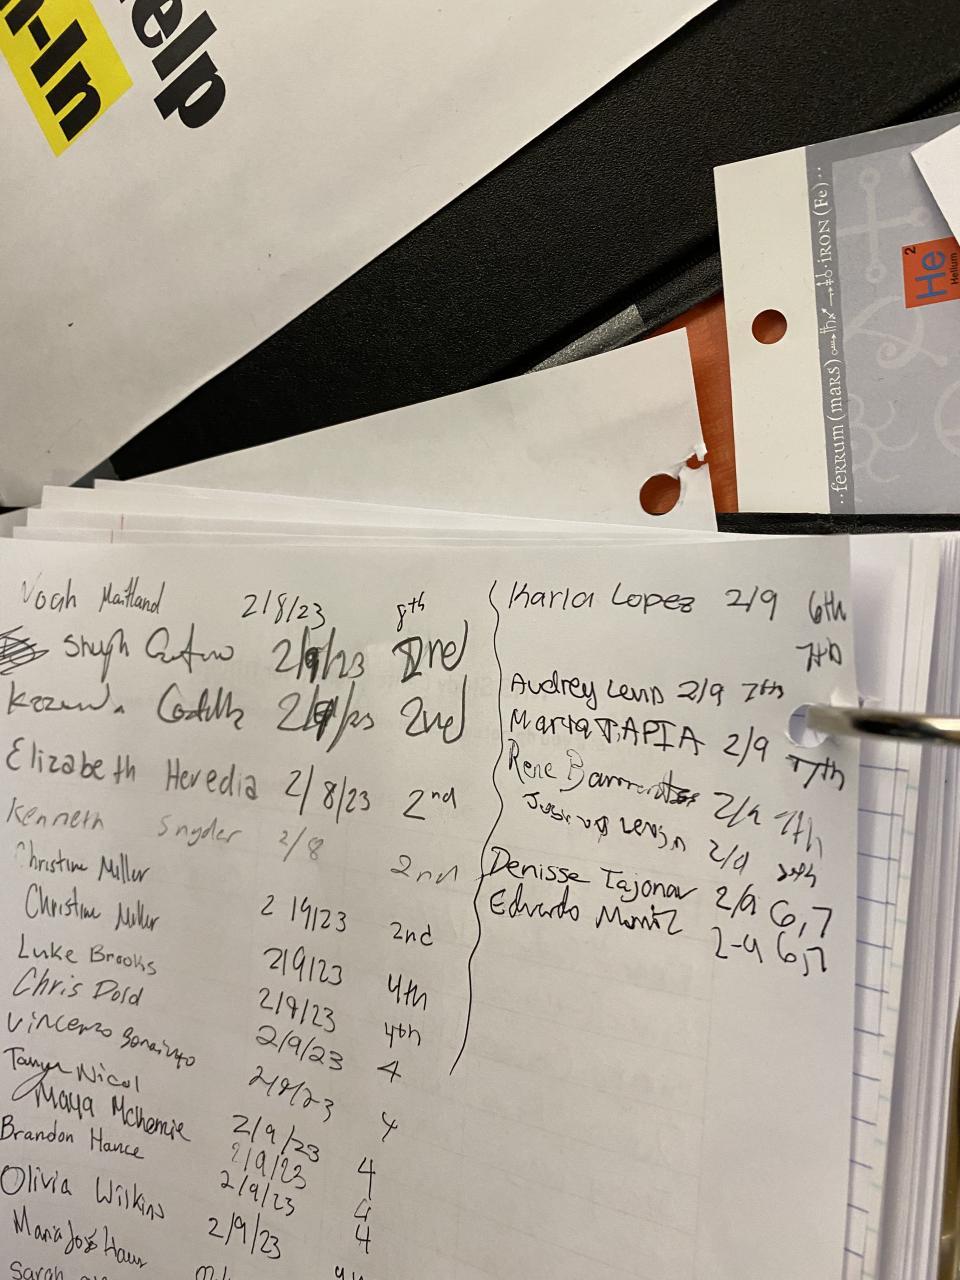 -In
elp
··ferrum (mars) → thx → ·iron (Fe)··
2
He
Helium
Noah Maitland 2/8/23 8th
2/9/23 2nd
2/9/23 2nd
Elizabeth Heredia 2/8/23 2nd
Kenneth Snyder 2/8 2nd
Christine Miller
Christine Miller 2/9/23 2nd
Luke Brooks 2/9/23 4th
Chris Dold 2/9/23 4th
Vincenzo 2/9/23 4
Tanya Nicol 2/9/23 4
Maya McKenzie 2/9/23 4
Brandon Hance 2/9/23 4
Olivia Wilkins 2/9/23 4
Maria José 2/9/23
Sarah
Karla Lopez 2/9 6th
7th
Audrey Lewis 2/9 7th
Maria TAPIA 2/9 7th
Rene 2/9 7th
2/9
Denisse Tajonar 2/9 6,7
Edvardo Muniz 2-9 6,7